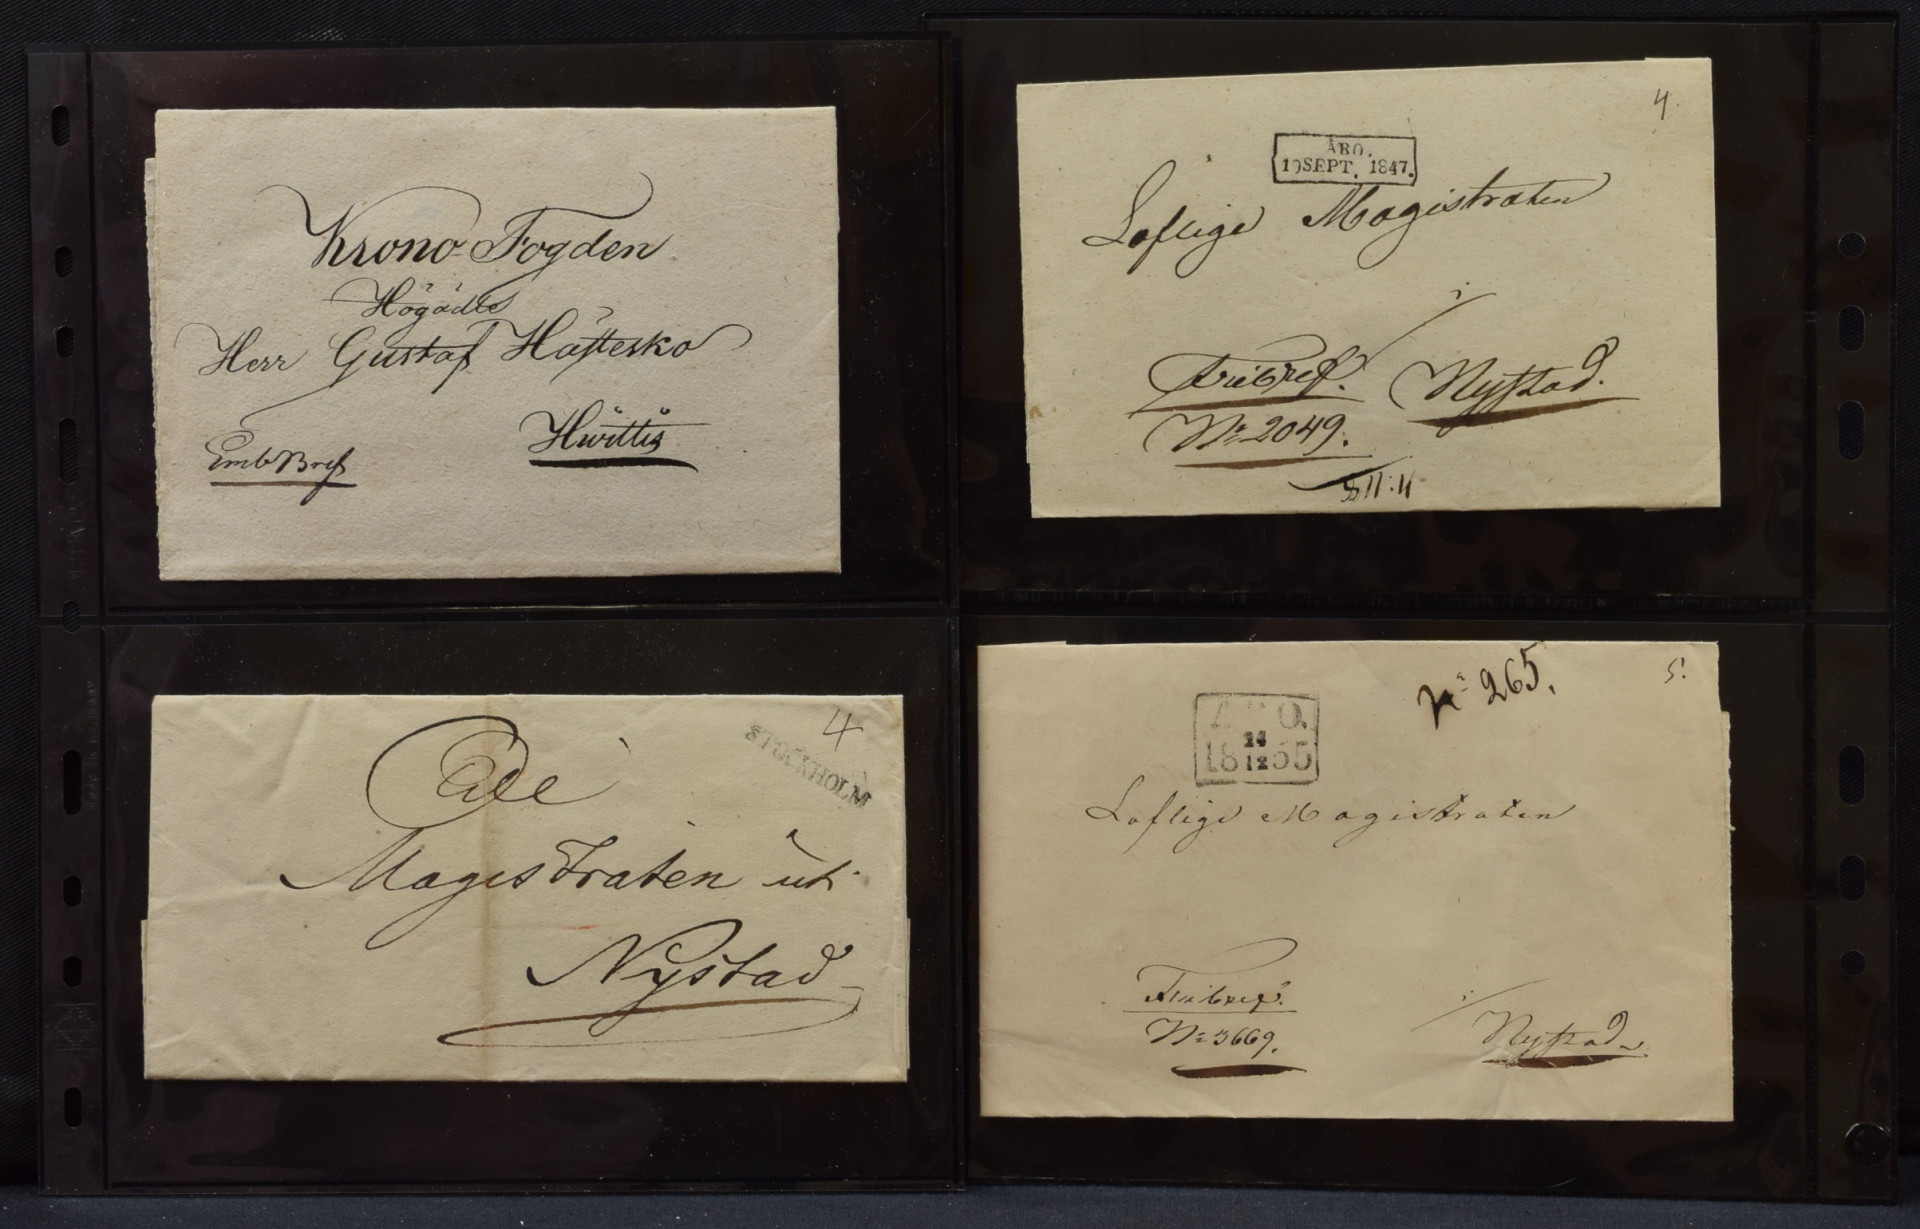 Krono-Fogden
Högädle
Herr Gustaf Häfterko
Emb Bref
Hwittis
4.
ÅBO.
19 SEPT. 1847.
Loflige Magistraten
i
Fribref. Nystad.
No 2049.
4
STOCKHOLM
Magistraten uti
Nystad
No 265.
5.
ÅBO.
24
18 12 55
Loflige Magistraten
Fribref.
i Nystad.
No 3669.